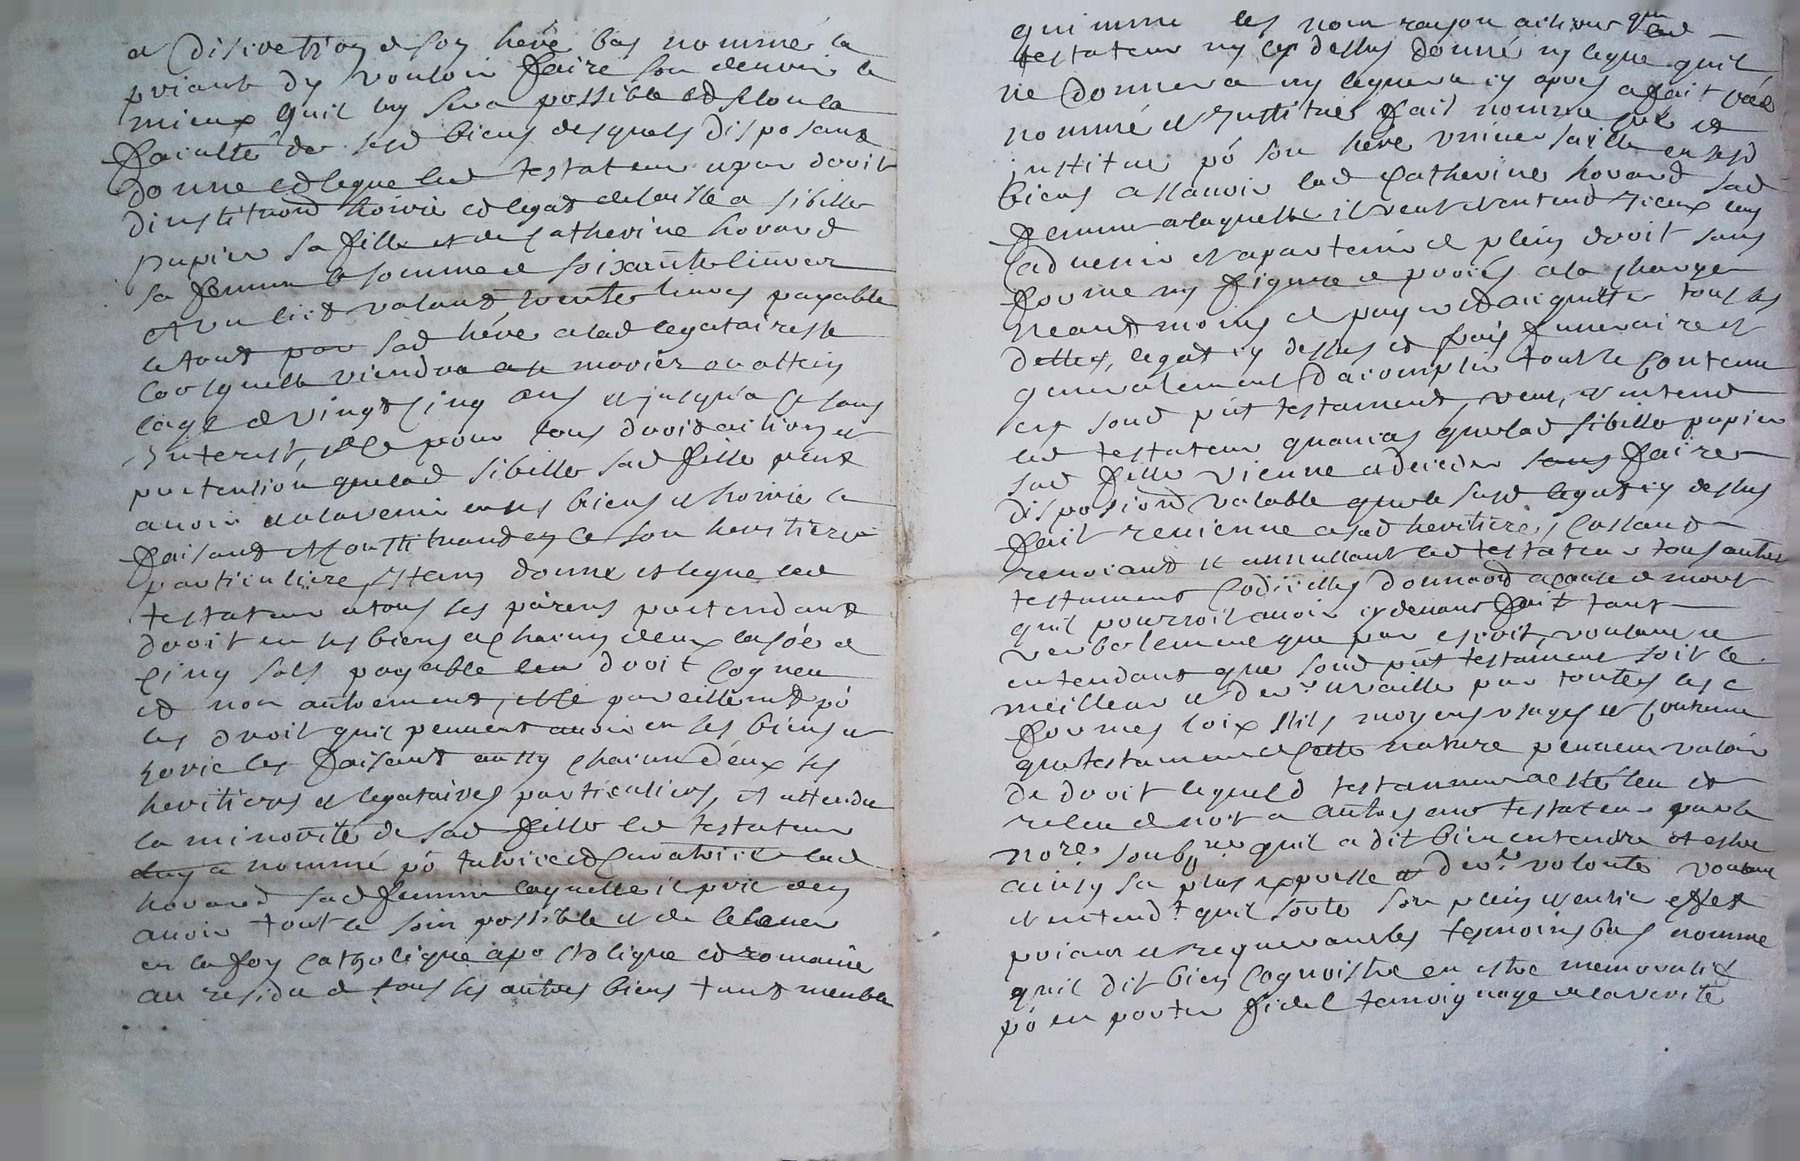 a discretion de son here bas nommée la
priant dy vouloir faire son devoir le
mieux quil luy sera possible et selon la
faculté de sesd biens desquels disposant
donne et legue led testateur par droit
dinstitution hoirie et legat delaisse a sibille
papier sa fille et de Catherine hovard
sa femme la somme de soixante livres
et un lict valant trente livres payable
le tout par sad hére a lad legataire
lorsquelle viendra a se marier ou attein
lage de vingt cinq ans et jusqu'a ce sans
interest, et ce pour tous droits actions et
pretention que lad sibille sad fille peut
avoir a ladvenir en ses biens et hoirie la
faisant et constituant en ce son heritiere
particuliere, Item donne et legue led
testateur a tous ses parens pretendant
droit en ses biens a chacun deux la sôe de
cinq sols payable leur droit cogneu
et non autrement, et ce pareillemt pô
les droit quil peuvent avoir en ses biens et
hoirie les faisant aussy chacun deux ses
heritiers et legataires particuliers, et attendu
la minorité de sad fille led testateur
luy a nommé pô tutrice et curatrice lad
hovard sad femme laquelle il prie den
avoir tout le soin possible et de le lever
en la foy catholique apostolique et romaine
au residu de tous ses autres biens tant meuble
qui imme les nom rayson actions que led
testateur ny cy dessus donné ny legue quil
ne donnera ny leguera cy apres a fait
nommé et institue fait nomme cree et
institue pô son hére universaille en sesd
biens a scavoir lad Catherine hovard sad
femme a laquelle il veut et entend iceux luy
advenir et apartenir de plein droit sans
forme ny figure de proces a la charge
neantmoins de payer et acquitter tous ses
dettes, legat cy dessus et frais funeraire et
generalement daccomplir tout le contenu
en sond pnt testament, veut, et entend
led testateur quaucas que lad sibille papier
sad fille vienne a deceder sans faire
disposion valable que le susd legat cy dessus
fait revienne a sad heritiere, Cassant
revoiant et annullant led testateur tous autres
testament Codicilles donnaon a cause de mort
quil pourroit avoir cy devant fait tant
verbalement que par escrit, voulant et
entendant que sond pnt testament soit le
meilleur et dere et vaille par toutes les
formes loix stils moyens usages et coutume
que testament de cette nature peuvent valoir
de droit lequeld testament a esté leu et
releu de mot a autres aud testateur par le
nore soubne quil a dit bien entendre et estre
ainsy sa plus expresse et dere volonte voulant
et entendt quil sorte son plein et entier effet
priant et requerant les tesmoins bas nomme
quil dit bien Cognoistre en estre memoratif
pô en porter fidel temoignage de la verité